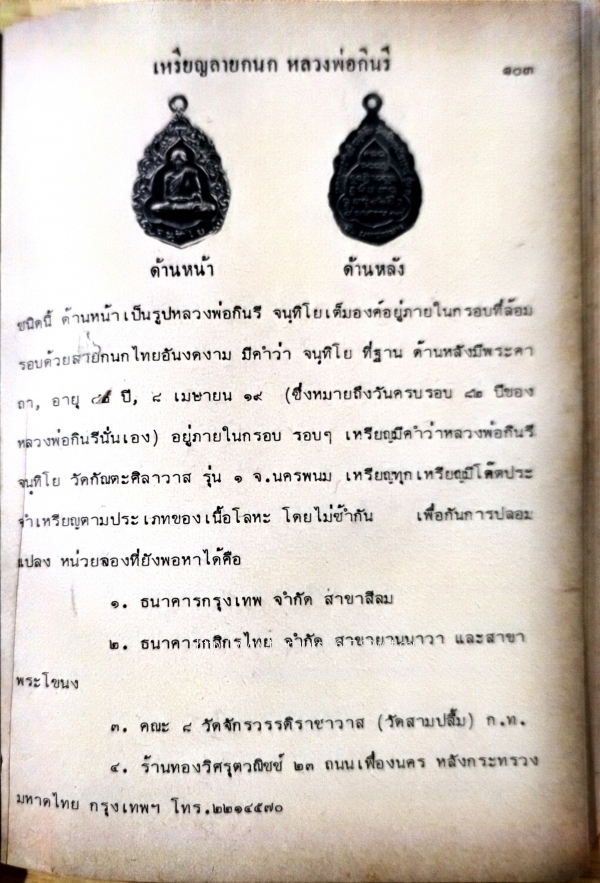 เหรียญลายกนก หลวงพ่อกินรี
๑๐๓
ด้านหน้า ด้านหลัง
ชนิดนี้ ด้านหน้าเป็นรูปหลวงพ่อกินรี จนฺทิโยเต็มองค์อยู่ภายในกรอบที่ล้อม
รอบด้วยลายกนกไทยอันงดงาม มีคำว่า จนฺทิโย ที่ฐาน ด้านหลังมีพระคา
ถา, อายุ ๘๒ ปี, ๘ เมษายน ๑๙ (ซึ่งหมายถึงวันครบรอบ ๘๒ ปีของ
หลวงพ่อกินรีนั่นเอง) อยู่ภายในกรอบ รอบๆ เหรียญมีคำว่าหลวงพ่อกินรี
จนฺทิโย วัดกัณตะศิลาวาส รุ่น ๑ จ.นครพนม เหรียญทุกเหรียญมีโค๊ตประ
จำเหรียญตามประเภทของเนื้อโลหะ โดยไม่ซ้ำกัน เพื่อกันการปลอม
แปลง หน่วยจองที่ยังพอหาได้คือ
๑. ธนาคารกรุงเทพ จำกัด สาขาสีลม
๒. ธนาคารกสิกรไทย จำกัด สาขายานนาวา และสาขา
พระโขนง
๓. คณะ ๘ วัดจักรวรรดิราชาวาส (วัดสามปลื้ม) ก.ท.
๔. ร้านทองวิศรุตวณิชช์ ๒๓ ถนนเฟื่องนคร หลังกระทรวง
มหาดไทย กรุงเทพฯ โทร.๒๒๑๔๕๗๐